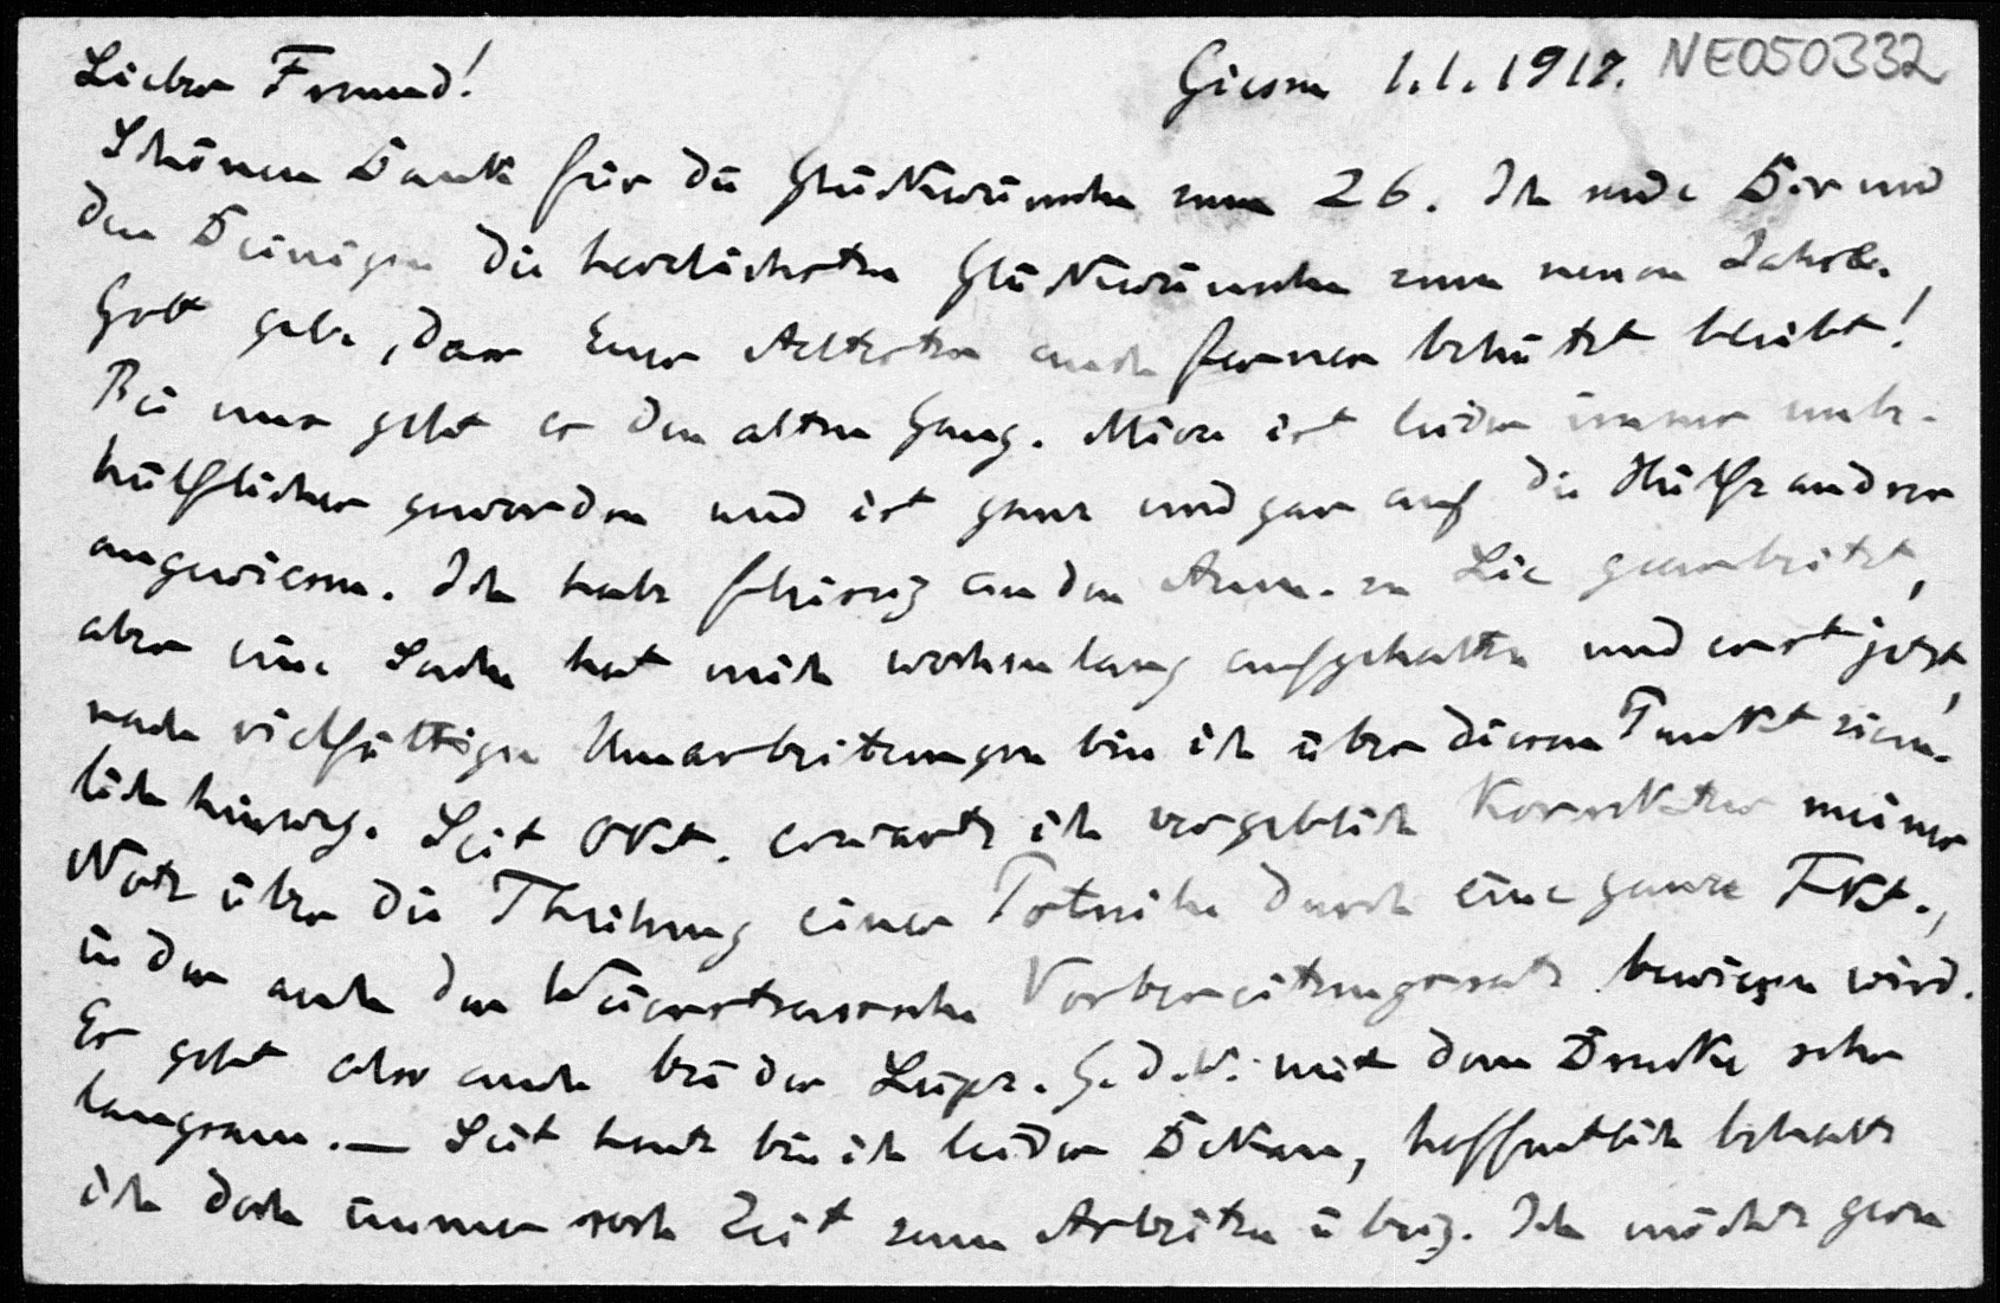 Lieber Freund! Giessen 1.1.1917. NE050332
Schönen Dank für die Glückwünsche zum 26. Ich sende Dir und
den Deinigen die herzlichsten Glückwünsche zum neuen Jahre.
Gott gebe, dass Euer Aeltester auch ferner behütet bleibt!
Bei uns geht es den alten Gang. ist leider immer unbe-
hülflicher geworden und ist ganz und gar auf die Hülfe andrer
angewiesen. Ich habe fleissig an den Anm. zu Lie gearbeitet,
aber eine Sache hat mich wochenlang aufgehalten und erst jetzt,
nach vielfältigen Umarbeitungen bin ich über diesen Punkt ziem-
lich hinweg. Seit Okt. erwarte ich vergeblich Korrektur meiner
Note über die Theilung einer Potreihe durch eine ganze Fkt.,
in der auch der Weierstrasssche Vorbereitungssatz bewiesen wird.
Es geht also auch bei der Leipz. G. d. W. mit dem Drucke sehr
langsam. — Seit heute bin ich leider Dekan, hoffentlich behalte
ich doch immer noch Zeit zum Arbeiten übrig. Ich möchte gern